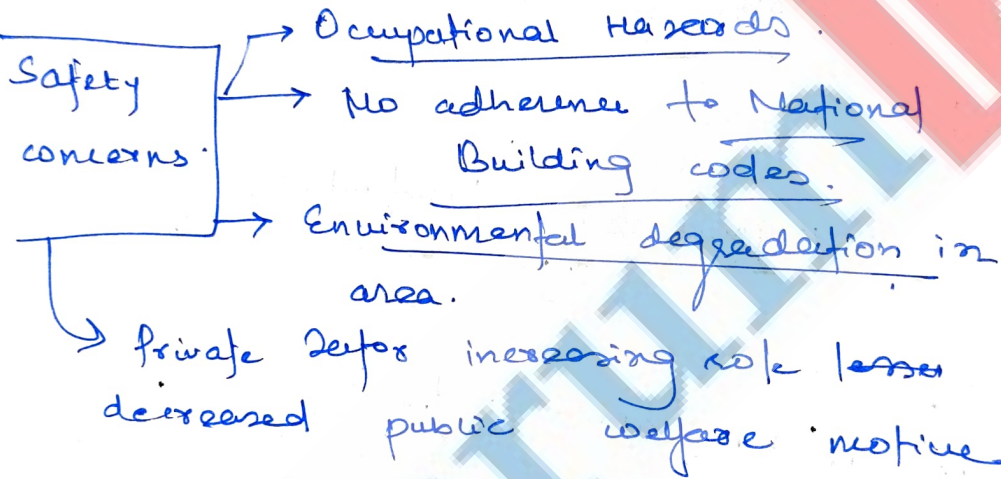 Safety
concerns.
→ Occupational Hazards.
→ No adherence to National
Building codes.
→ Environmental degradation in
area.
→ Private Sector increasing role
decreased public welfare motive